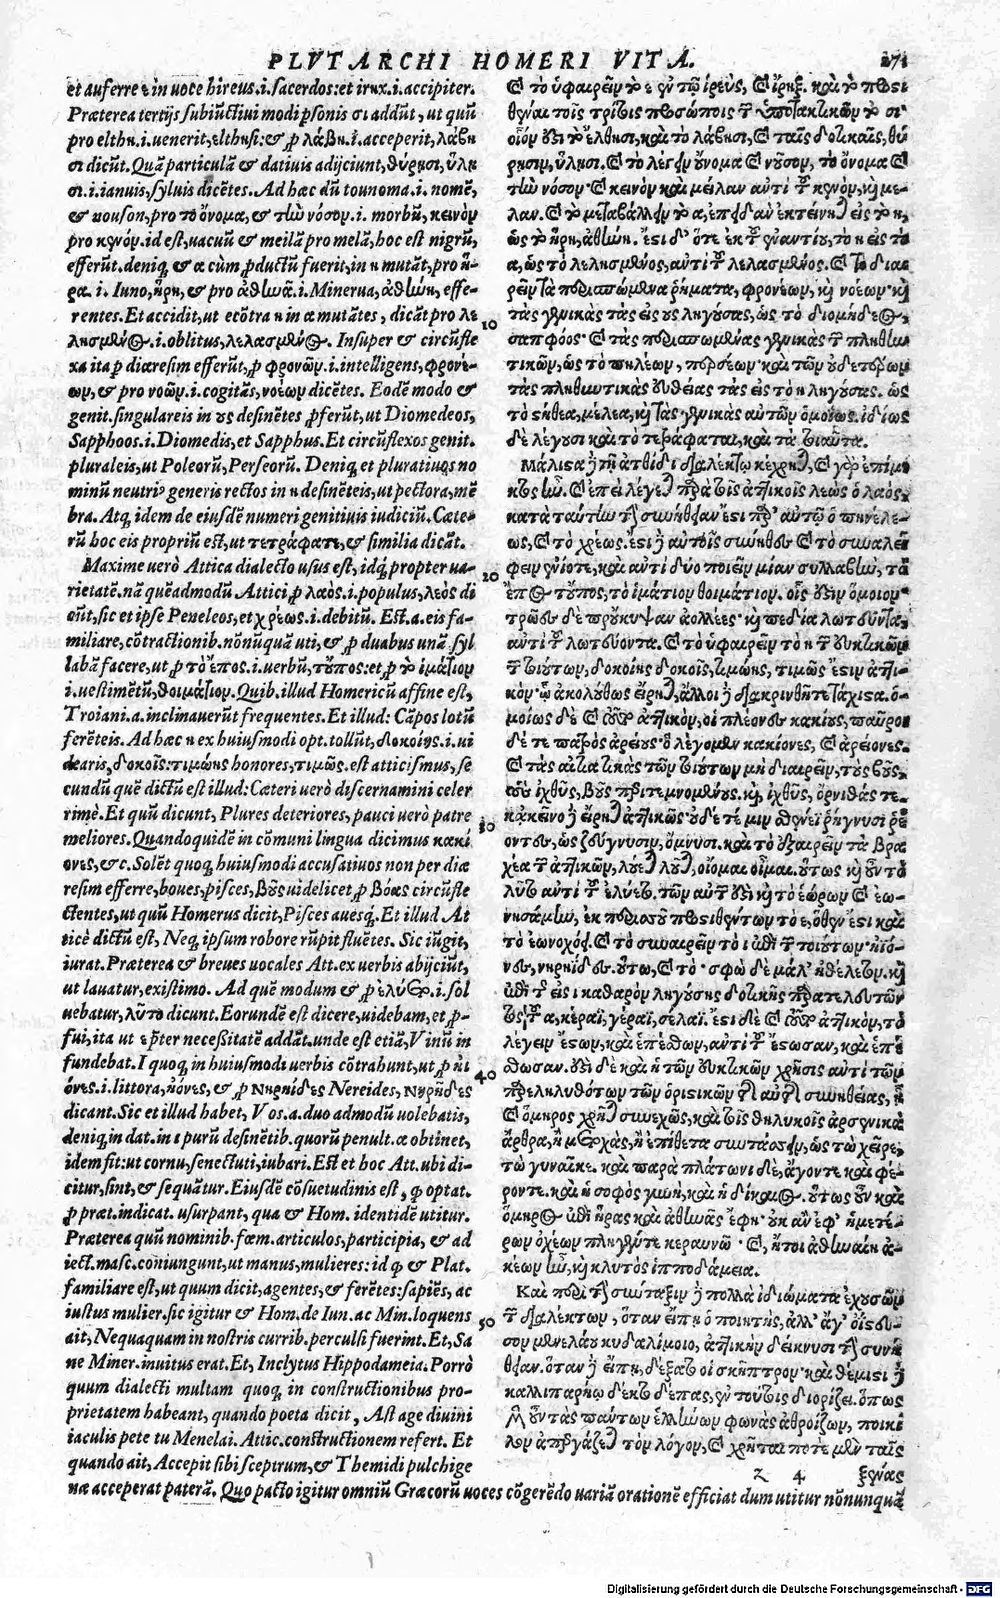 PLVTARCHI HOMERI VITA. 271
et auferre ε in uoce hireus.i.sacerdos:et irnx.i.accipiter.
Præterea tertijs subiũctiui modi psonis σι addũt, ut quũ
pro elthn.i.uenerit,elthnsi:& ꝓ λάβη.i.acceperit,λάβη
σι dicũt. Quã particulã & datiuis adijciunt,θύρησι,ὕλη
σι.i.ianuis,syluis dicẽtes. Ad hæc dũ tounoma.i. nomẽ,
& nouson,pro τὸ ὄνομα,& τὴν νόσον.i. morbũ, κεινὸν
pro κενόν.id est,uacuũ & meilã pro melã,hoc est nigrũ,
efferũt.deniq; & α cùm ꝓductũ fuerit,in η mutãt,pro ἥ-
ρα.i. Iuno,ἥρη,& pro ἀθηνᾶ.i. Minerua,ἀθήνη, effe-
rentes.Et accidit,ut ecõtra η in α mutãtes, dicãt pro λε 10
λησμένος.i.oblitus,λελασμένος. Insuper & circũfle
xa ita p diæresim efferũt,ꝓ φρονῶν.i.intelligens,φρονέ-
ων,& pro νοῶν.i.cogitãs,νοέων dicẽtes. Eodẽ modo &
genit.singulareis in ους desinẽtes ꝓferũt,ut Diomedeos,
Sapphoos.i.Diomedis,et Sapphus.Et circũflexos genit.
pluraleis,ut Poleorũ,Perseorũ. Deniq; et pluratiuos no
minũ neutri⁹ generis rectos in η desinẽteis,ut pectora,mẽ
bra. Atq; idem de eiusdẽ numeri genitiuis iudiciũ. Cæte-
rũ hoc eis propriũ est,ut τετράφατι,& similia dicãt.
Maxime uerò Attica dialecto usus est, idq; propter ua- 20
rietatẽ. nã queadmodũ Attici,ꝓ λαὸς.i.populus,λεὸς di
cũt,sic et ipse Peneleos,et χρέως.i.debitũ. Est.a.eis fa-
miliare,cõtractionib.nõnũquã uti,& ꝓ duabus unã syl
labã facere,ut ꝓ τὸ ἔπος.i.uerbũ,τοὔπος:et ꝓ τὸ ἱμάτιον
i.uestimẽtũ,θοιμάτιον.Quib.illud Homericũ affine est,
Troiani.a.inclinauerũt frequentes.Et illud: Cãpos lotũ
ferẽteis. Ad hæc η ex huiusmodi opt.tollũt,δοκοίης.i.ui
dearis,δοκοῖς:τιμῴης honores,τιμῷς. est atticismus,se
cundũ quẽ dictũ est illud:Cæteri uerò discernamini celer
rimè. Et quũ dicunt, Plures deteriores,pauci uerò patre 30
meliores.Quandoquidẽ in cõmuni lingua dicimus κακί
ονες,&c. Solẽt quoq; huiusmodi accusatiuos non per diæ
resim efferre,boues,pisces, βοῦς uidelicet ꝓ βόας circũfle
ctentes,ut quũ Homerus dicit,Pisces auesq;. Et illud At
ticè dictũ est, Neq; ipsum robore rũpit fluẽtes. Sic iũgit,
iurat.Præterea & breues uocales Att.ex uerbis abijciũt,
ut lauatur,existimo. Ad quẽ modum & ꝓ ἐλύετο.i.sol
uebatur,λῦτο dicunt.Eorundẽ est dicere,uidebam,et ꝓ-
fui,ita ut ꝓpter necessitatẽ addãt.unde est etiã,Vinũ in
fundebat.I quoq; in huiusmodi uerbis cõtrahunt,ut ꝓ ἠϊ 40
όνες.i.littora,ᾐόνες,& ꝓ Νηρηίδες Nereides, Νηρῇδες
dicant.Sic et illud habet, Vos.a.duo admodũ uolebatis,
deniq; in dat.in ι purũ desinẽtib.quorũ penult.α obtinet,
idem fit:ut cornu,senectuti,iubari.Est et hoc Att.ubi di-
citur,sint,& sequãtur.Eiusdẽ cõsuetudinis est, ꝙ optat.
ꝓ præt.indicat. usurpant, qua & Hom.identidẽ utitur.
Præterea quũ nominib.fœm.articulos,participia, & ad
iect.masc.coniungunt,ut manus,mulieres:id ꝙ & Plat.
familiare est,ut quum dicit,agentes,& ferẽtes:sapiẽs, ac
iustus mulier.sic igitur & Hom.de Iun.ac Min.loquens 50
ait,Nequaquam in nostris currib.perculsi fuerint.Et,Sa
ne Miner.inuitus erat.Et,Inclytus Hippodameia.Porrò
quum dialecti multam quoq; in constructionibus pro-
prietatem habeant,quando poeta dicit, Ast age diuini
iaculis pete tu Menelai. Attic.constructionem refert. Et
quando ait,Accepit sibi sceptrum,& Themidi pulchige
næ acceperat paterã. Quo pacto igitur omniũ Græcorũ uoces cõgerẽdo uariã orationẽ efficiat dum utitur nõnunquã
καὶ τὸ ὑφαιρεῖν τὸ ε ἐν τῷ ἱρεὺς, καὶ ἴρηξ. καὶ τὸ προσι
θέναι τοῖς τρίτοις προσώποις τῶν ὑποτακτικῶν τὸ σι·
οἷον ἐστι τὸ ἔλθησι,καὶ τὸ λάβησι,καὶ ταῖς δοτικαῖς,θύ
ρησιν,ὕλησι.καὶ τὸ λέγειν οὔνομα καὶ νοῦσον, τὸ ὄνομα καὶ
τὴν νόσον·καὶ κεινὸν καὶ μείλαν ἀντὶ τοῦ κενὸν,κὶ με-
λαν.καὶ τὸ μεταβάλλειν τὸ α,ἐπειδὰν ἐκτείνηται εἰς τὸ η,
ὡς τὸ ἥρη,ἀθήνη. ἔστι δ' ὅτε ἐκ τοῦ ἐναντίου,τὸ η εἰς τὸ
α,ὡς τὸ λελησμένος,ἀντὶ τοῦ λελασμένος.καὶ τὸ διαι
ρεῖν τὰ περισπώμενα ῥήματα, φρονέων, κὶ νοέων·κὶ
τὰς γενικὰς τὰς εἰς ους ληγούσας,ὡς τὸ διομήδεος,
σαπφόος·καὶ τὰς περισπωμένας γενικὰς τῶν πληθυν
τικῶν,ὡς τὸ πηλέων, περσέων·καὶ τῶν οὐδετέρων
τὰς πληθυντικὰς εὐθείας τὰς εἰς τὸ η ληγούσας. ὡς
τὸ στήθεα,μέλεα,κὶ τὰς γενικὰς αὐτῶν ὁμοίως.ἰδίως
δὲ λέγουσι καὶ τὸ τετράφαται,καὶ τὰ τοιαῦτα.
Μάλιστα δὲ τῇ ἀτθίδι διαλέκτῳ κέχρηται,καὶ γὰρ ἐπίμι
κτος ἦν.καὶ ἐπεὶ λέγεται παρὰ τοῖς ἀττικοῖς λεὼς ὁ λαὸς,
κατὰ ταύτην τὴν συνήθειαν ἐστι παρ' αὐτῷ ὁ πηνέλε-
ως,καὶ τὸ χρέως.ἔστι δὲ αὐτοῖς σύνηθες καὶ τὸ συναλεί
φειν ἐνίοτε,καὶ ἀντὶ δύο ποιεῖν μίαν συλλαβὴν, τὸ
ἔπος τοὖπος,τὸ ἱμάτιον θοιμάτιον. οἷς ἐστιν ὅμοιον·
τρῶες δὲ προύκυψαν ἀολλέες· κὶ πεδία λωτεῦντα,
ἀντὶ τοῦ λωτεύοντα. καὶ τὸ ὑφαιρεῖν τὸ η τῶν εὐκτικῶν
τῶν τοιούτων,δοκοίης δοκοῖς,τιμῴης, τιμῷς ἔστιν ἀττι-
κόν· ᾧ ἀκολούθως εἴρηται,ἄλλοι δὲ διακρινθῆτε τάχιστα.ὁ-
μοίως δὲ καὶ τοῦτο ἀττικὸν,οἱ πλέονες κακίους,παῦροι
δέ τε πατρὸς ἀρείους·ὃ λέγομεν κακίονες, καὶ ἀρείονες.
καὶ τὰς αἰτιατικὰς τῶν τοιούτων μὴ διαιρεῖν,τοὺς βοῦς,
τοὺς ἰχθῦς, βοῦς περιτεμνομένους.κὶ ἰχθῦς, ὄρνιθάς τε.
κἀκεῖνο δὲ εἴρηται ἀττικῶς οὐδέ τέ μιν σθένεϊ ῥήγνυσι ῥέ
οντες,ὡς ζεύγνυσιν,ὄμνυσι.καὶ τὸ ἐξαιρεῖν τὰ βρα
χέα τῶν ἀττικῶν,λούεται λοῦται,οἴομαι οἶμαι.οὕτως κὶ ἐν τὸ
λῦτο ἀντὶ τοῦ ἐλύετο.τῶν αὐτῶν ἐστι κὶ τὸ ἑώρων καὶ ἑω-
νησάμην, ἐκ περισσοῦ προστιθέντων τὸ ε,ὅθεν ἐστι καὶ
τὸ ἐωνοχόει.καὶ τὸ συναιρεῖν τὸ ι ἐπὶ τῶν τοιούτων· ἠϊό-
νες,νηρηίδες.οὕτω,καὶ τὸ· σφὼ δὲ μάλ' ἠθέλετον. κὶ
ἐπὶ τῆς εἰς ι καθαρὸν ληγούσης δοτικῆς παρατελευτῶν
τος τοῦ α,κέραϊ,γέραϊ,σέλαϊ. ἔστι δὲ καὶ τοῦτο ἀττικὸν,τὸ
λέγειν ἔστων,καὶ ἑπέσθων,ἀντὶ τοῦ ἔστωσαν, καὶ ἑπέ
σθωσαν.ἐστι δὲ καὶ ἡ τῶν εὐκτικῶν χρῆσις ἀντὶ τῶν
παρεληλυθότων τῶν ὁριστικῶν τῆς αὐτῆς συνηθείας, ᾗ
καὶ ὅμηρος χρῆται συνεχῶς,καὶ τοῖς θηλυκοῖς ἀρσενικὰ
ἄρθρα,ἢ μετοχὰς,ἢ ἐπίθετα συντάσσειν,ὡς τὼ χεῖρε,
τὼ γυναῖκε. καὶ παρὰ πλάτωνι δὲ,ἄγοντε καὶ φέ-
ροντε.καὶ ἡ σοφὸς γυνὴ,καὶ ἡ δίκαιος. οὕτως οὖν καὶ
ὅμηρος ἐπὶ ἥρας καὶ ἀθηνᾶς ἔφη· οὐκ ἂν ἐφ' ἡμετέ-
ρων ὀχέων πληγέντε κεραυνῷ · καὶ, ἤτοι ἀθηναίη ἀ-
κέων ἦν,κὶ κλυτὸς ἱπποδάμεια.
Καὶ περὶ τὴν σύνταξιν δὲ πολλὰ ἰδιώματα ἐχουσῶν
τῶν διαλέκτων, ὅταν εἴπῃ ὁ ποιητὴς, ἀλλ' ἄγ' ὀΐστευ-
σον μενελάου κυδαλίμοιο, ἀττικὴν δείκνυσι τὴν συνή
θειαν.ὅταν δὲ εἴπῃ, δέξατό οἱ σκῆπτρον·καὶ θέμιστι δὲ
καλλιπαρῄῳ δέκτο δέπας, ἐν τούτοις διορίζει.ὅπως
μὲν οὖν τὰς πάντων ἑλλήνων φωνὰς ἀθροίζων, ποικί
λον ἀπεργάζεται τὸν λόγον, καὶ χρῆται ποτὲ μὲν ταῖς
z 4 ξέναις
Digitalisierung gefördert durch die Deutsche Forschungsgemeinschaft - DFG